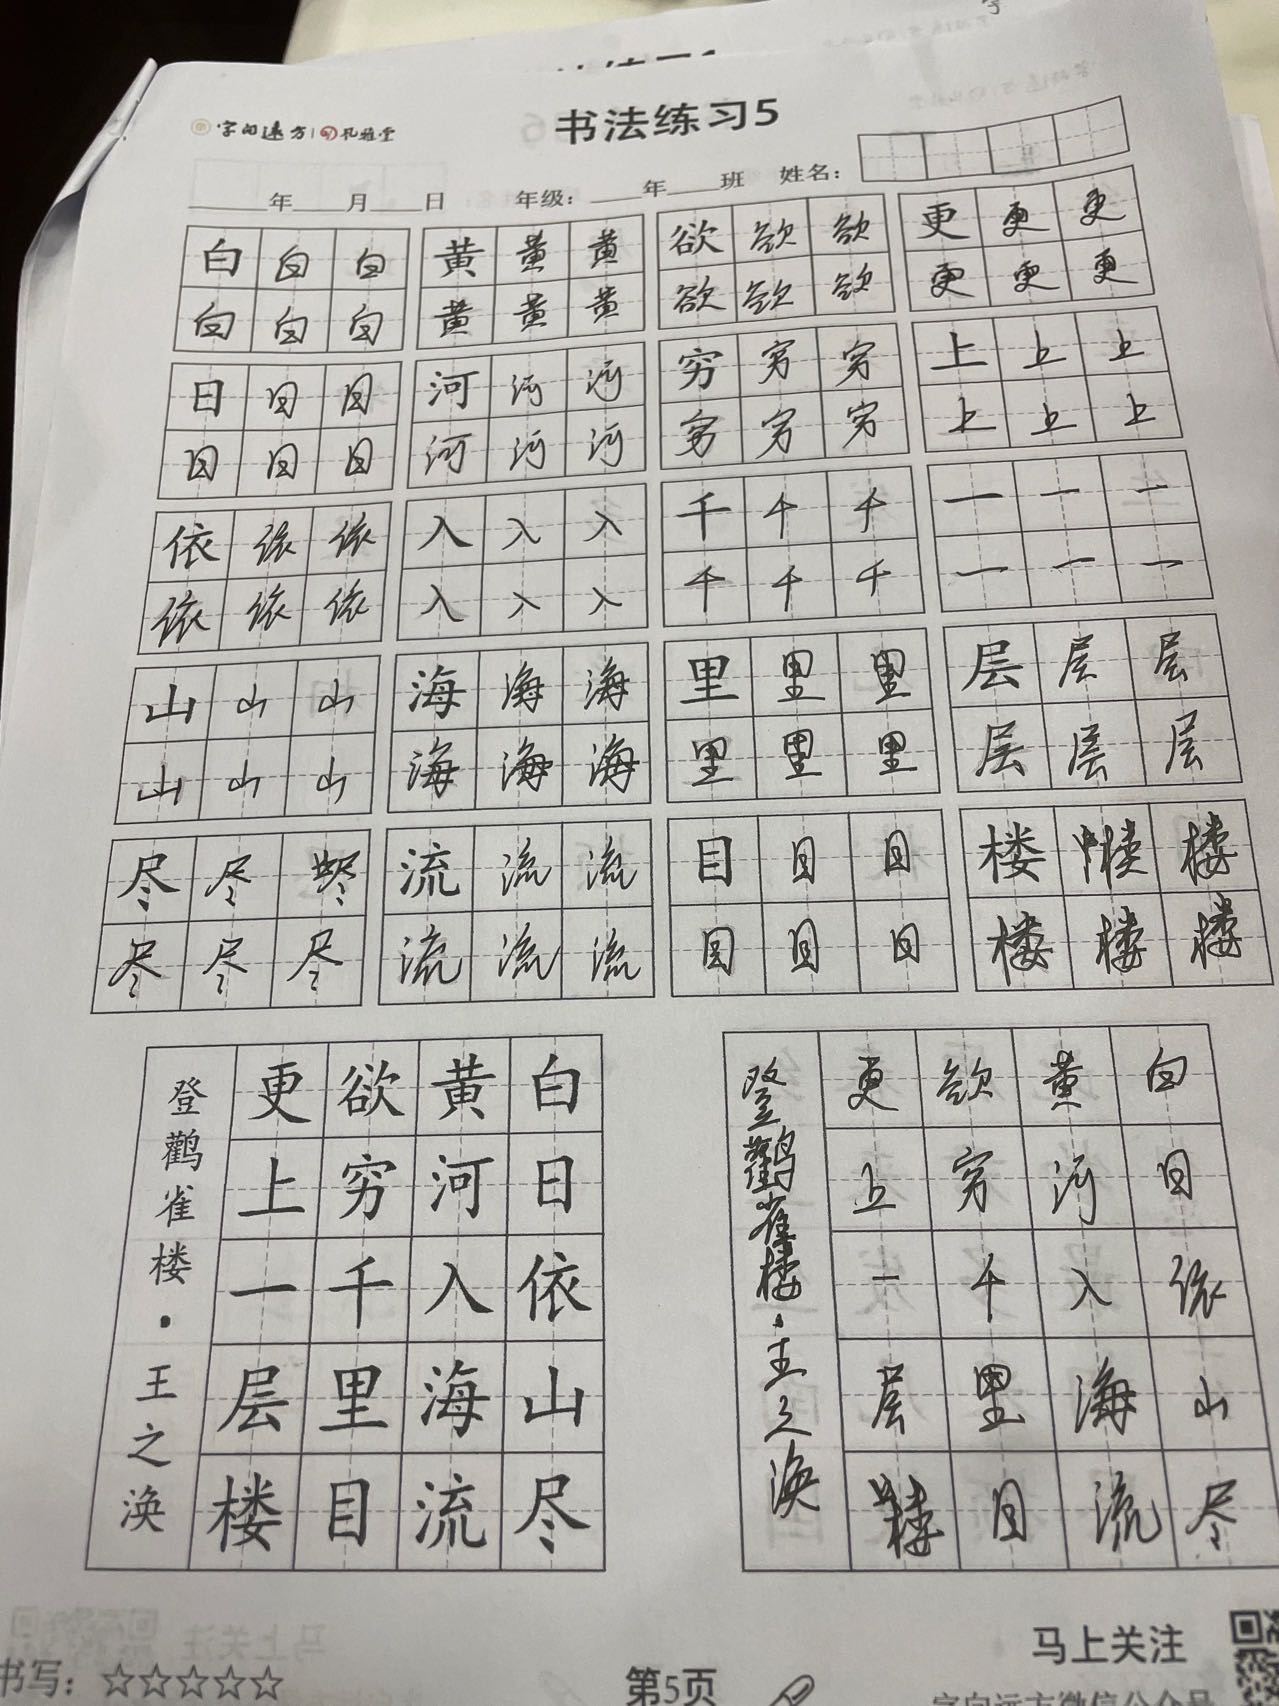 字向远方 孔雅堂
书法练习5
年 月 日 年级： 年 班 姓名：
白白白 黄黄黄 欲欲欲 更更更
白白白 黄黄黄 欲欲欲 更更更
日日日 河河河 穷穷穷 上上上
日日日 河河河 穷穷穷 上上上
依依依 入入入 千千千 一一一
依依依 入入入 千千千 一一一
山山山 海海海 里里里 层层层
山山山 海海海 里里里 层层层
尽尽尽 流流流 目目目 楼楼楼
尽尽尽 流流流 目目目 楼楼楼
白日依山尽
黄河入海流
欲穷千里目
更上一层楼
登鹳雀楼·王之涣
白日依山尽
黄河入海流
欲穷千里目
更上一层楼
登鹳雀楼·王之涣
马上关注
书写：☆☆☆☆☆
第5页
字向远方微信公众号